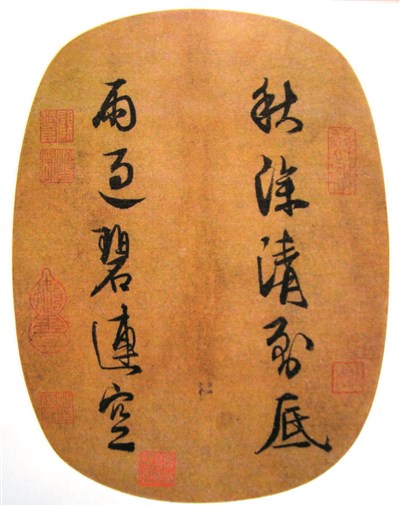 秋深清到底
雨過碧連空